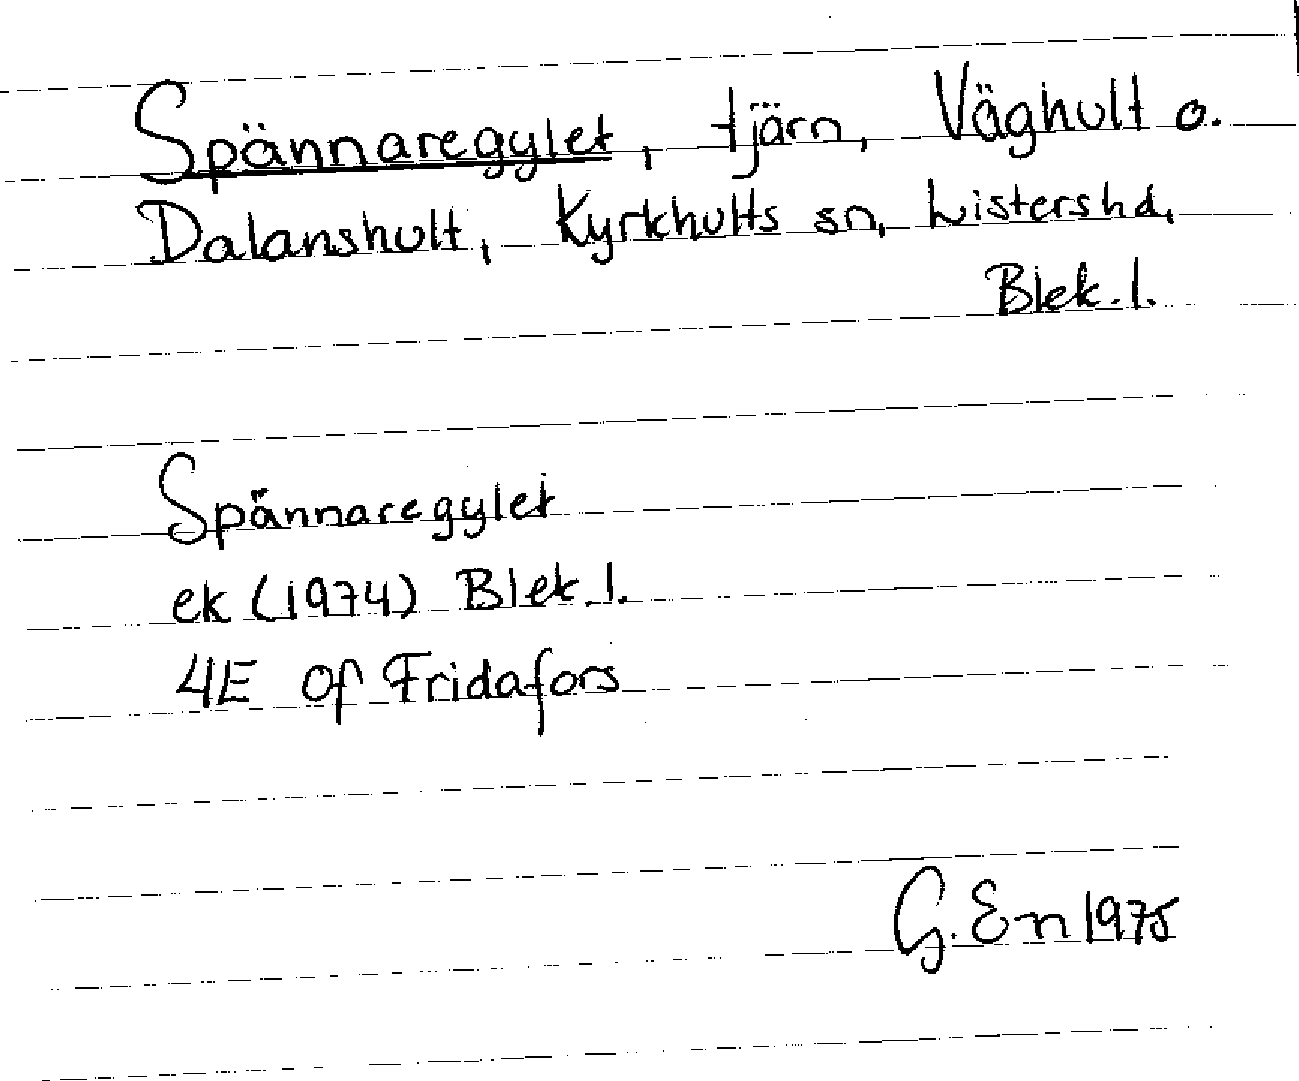 Spännaregylet, tjärn, Väghult o.
Dalanshult, Kyrkhults sn, Listers hd,
Blek. l.
Spännaregylet
ek (1974) Blek. l.
4E Of Fridafors
G. En 1975